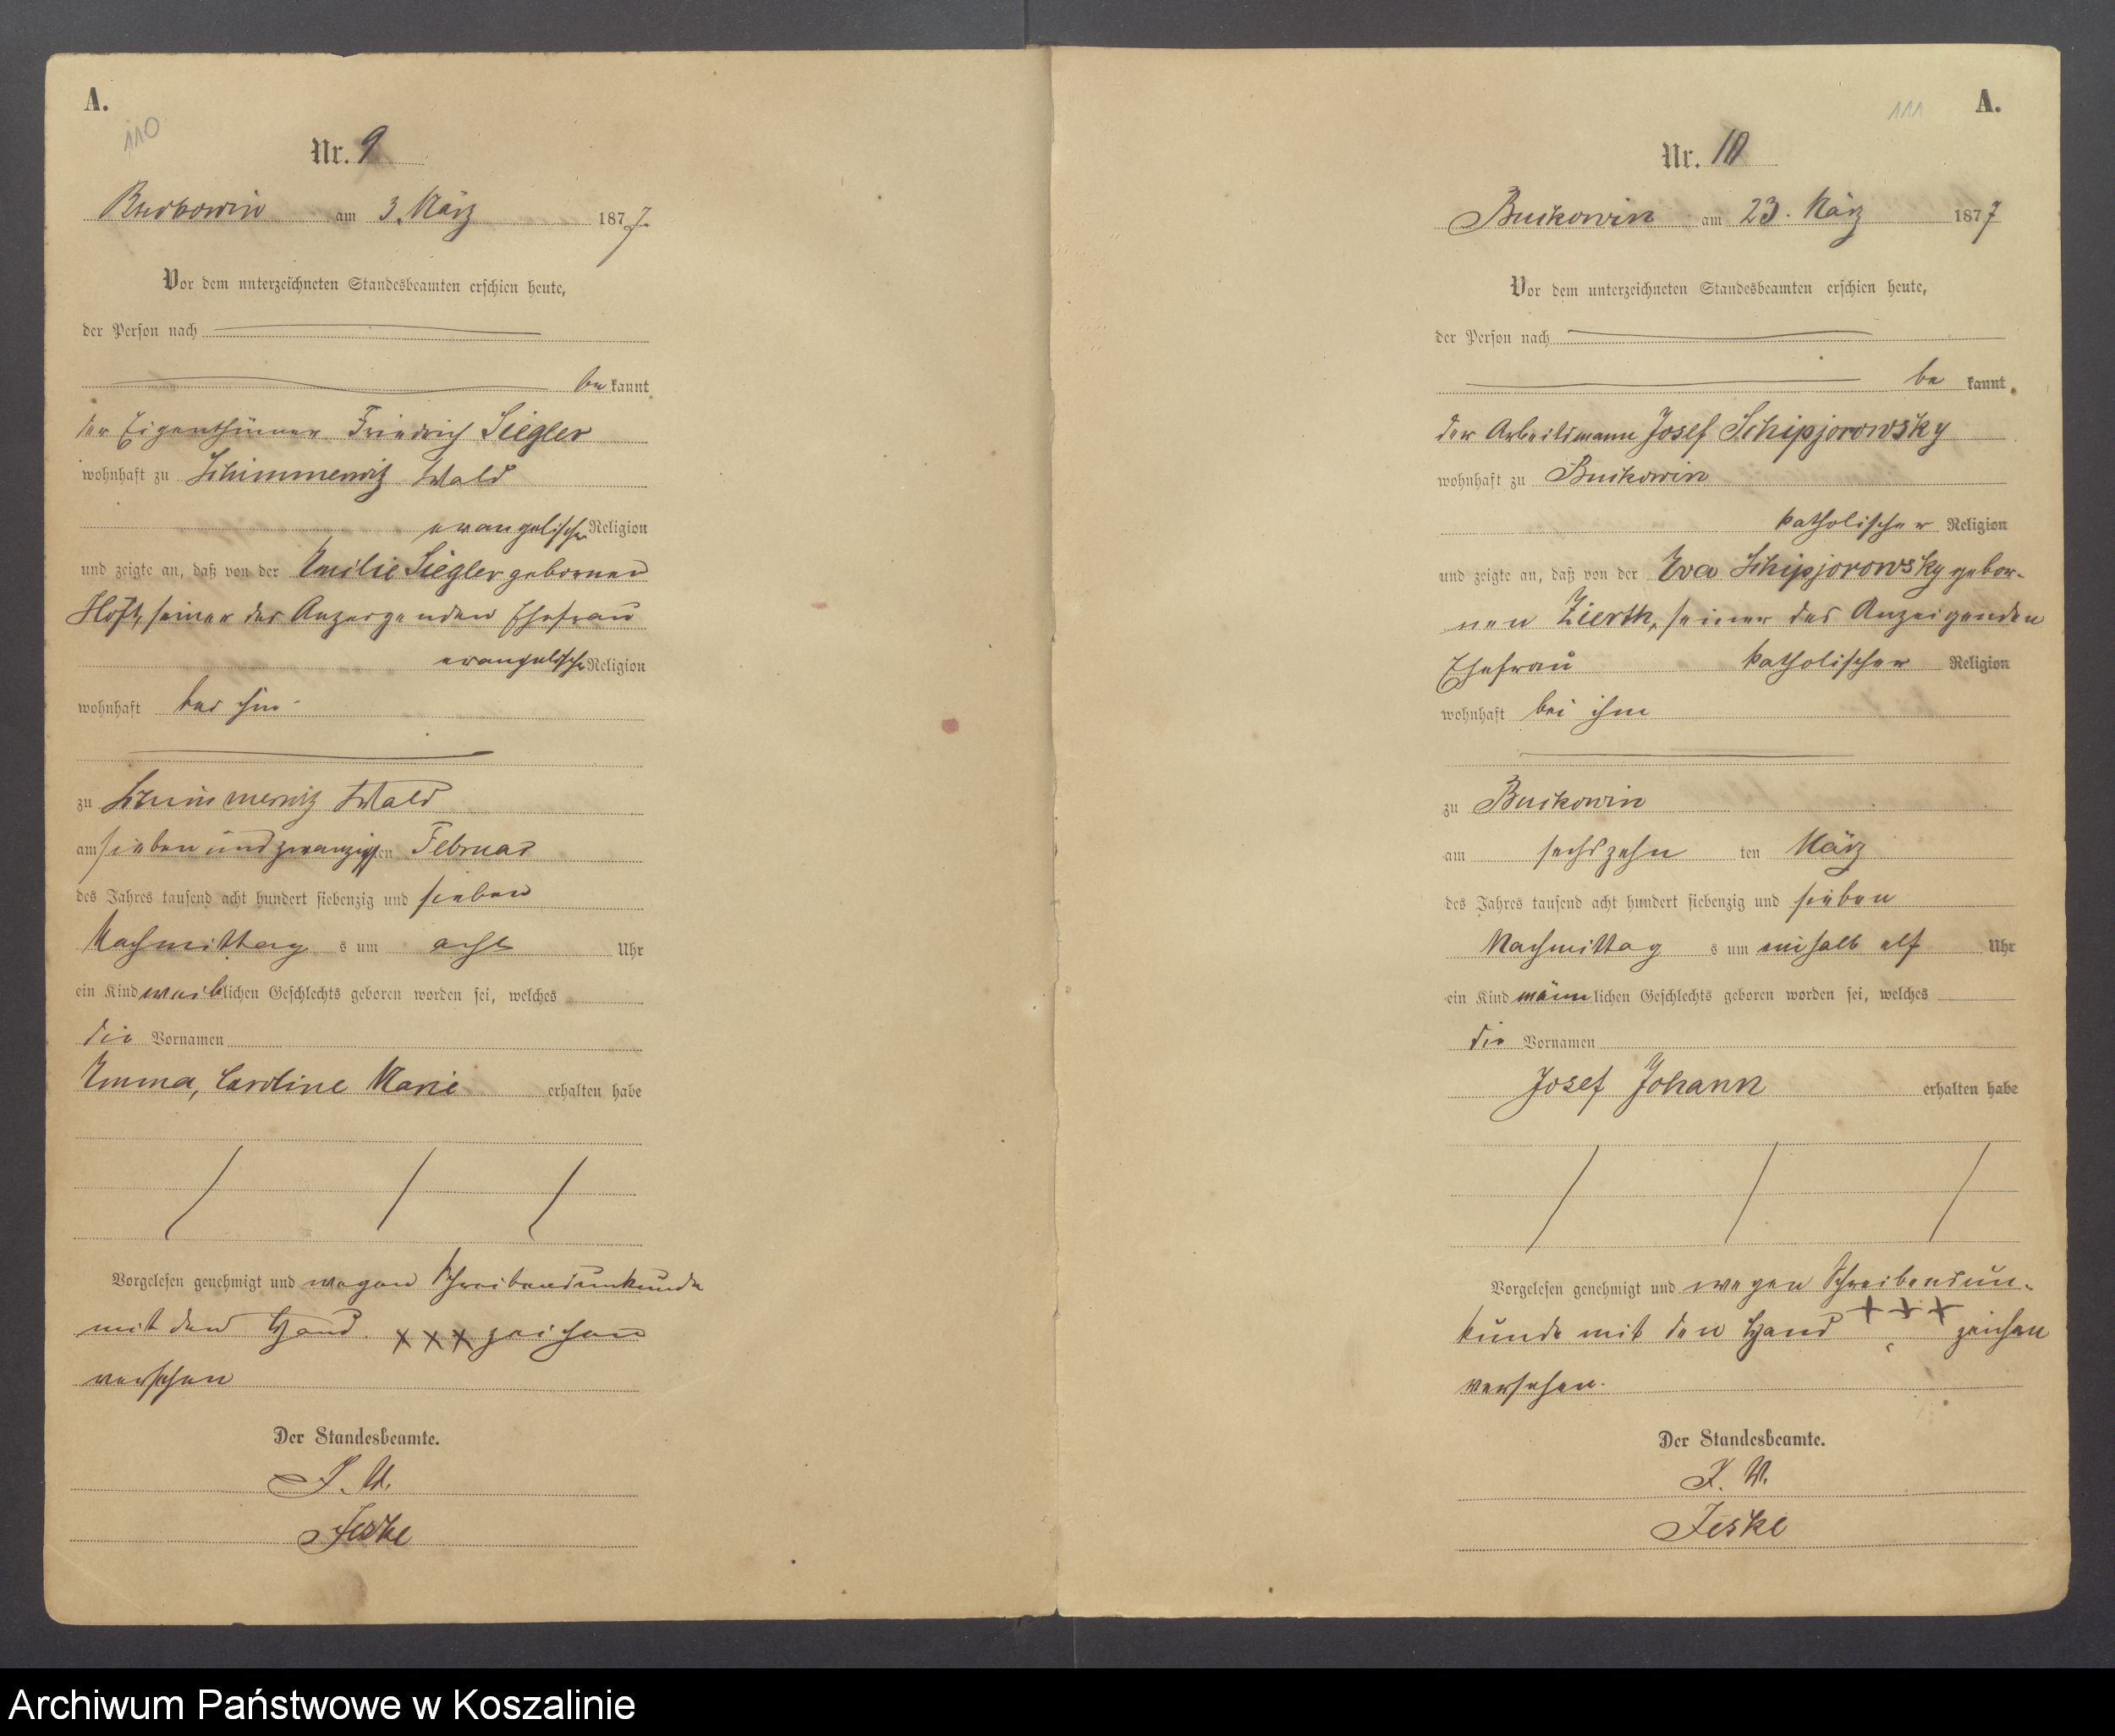 A.
110
Nr. 9
Buckowin am 3. März 1877.
Vor dem unterzeichneten Standesbeamten erschien heute,
der Person nach
bekannt
der Eigenthümer Friedrich Siegler
wohnhaft zu Schimmerwitz Wald
evangelischer Religion
und zeigte an, daß von der Emilie Siegler gebornen
seiner des Anzeigenden Ehefrau
evangelischer Religion
wohnhaft bei ihm
zu Schimmerwitz Wald
am sieben und zwanzigsten Februar
des Jahres tausend acht hundert siebenzig und sieben
Nachmittags um acht Uhr
ein Kind weiblichen Geschlechts geboren worden sei, welches
die Vornamen
Emma, Caroline Marie erhalten habe
Vorgelesen genehmigt und wegen Schreibensunkunde
mit den Hand xxx zeichen
versehen
Der Standesbeamte.
J. V.
Jeske
A.
111
Nr. 10
Buckowin am 23. März 1877
Vor dem unterzeichneten Standesbeamten erschien heute,
der Person nach
bekannt
der Arbeitsmann Josef Schipjorowsky
wohnhaft zu Buckowin
katholischer Religion
und zeigte an, daß von der Eva Schipjorowsky gebor-
nen Zierth, seiner des Anzeigenden
Ehefrau katholischer Religion
wohnhaft bei ihm
zu Buckowin
am sechszehnten März
des Jahres tausend acht hundert siebenzig und sieben
Nachmittags um einhalb elf Uhr
ein Kind männlichen Geschlechts geboren worden sei, welches
die Vornamen
Josef Johann erhalten habe
Vorgelesen genehmigt und wegen Schreibensun-
kunde mit den Hand +++ zeichen
versehen.
Der Standesbeamte.
J. V.
Jeske
Archiwum Państwowe w Koszalinie